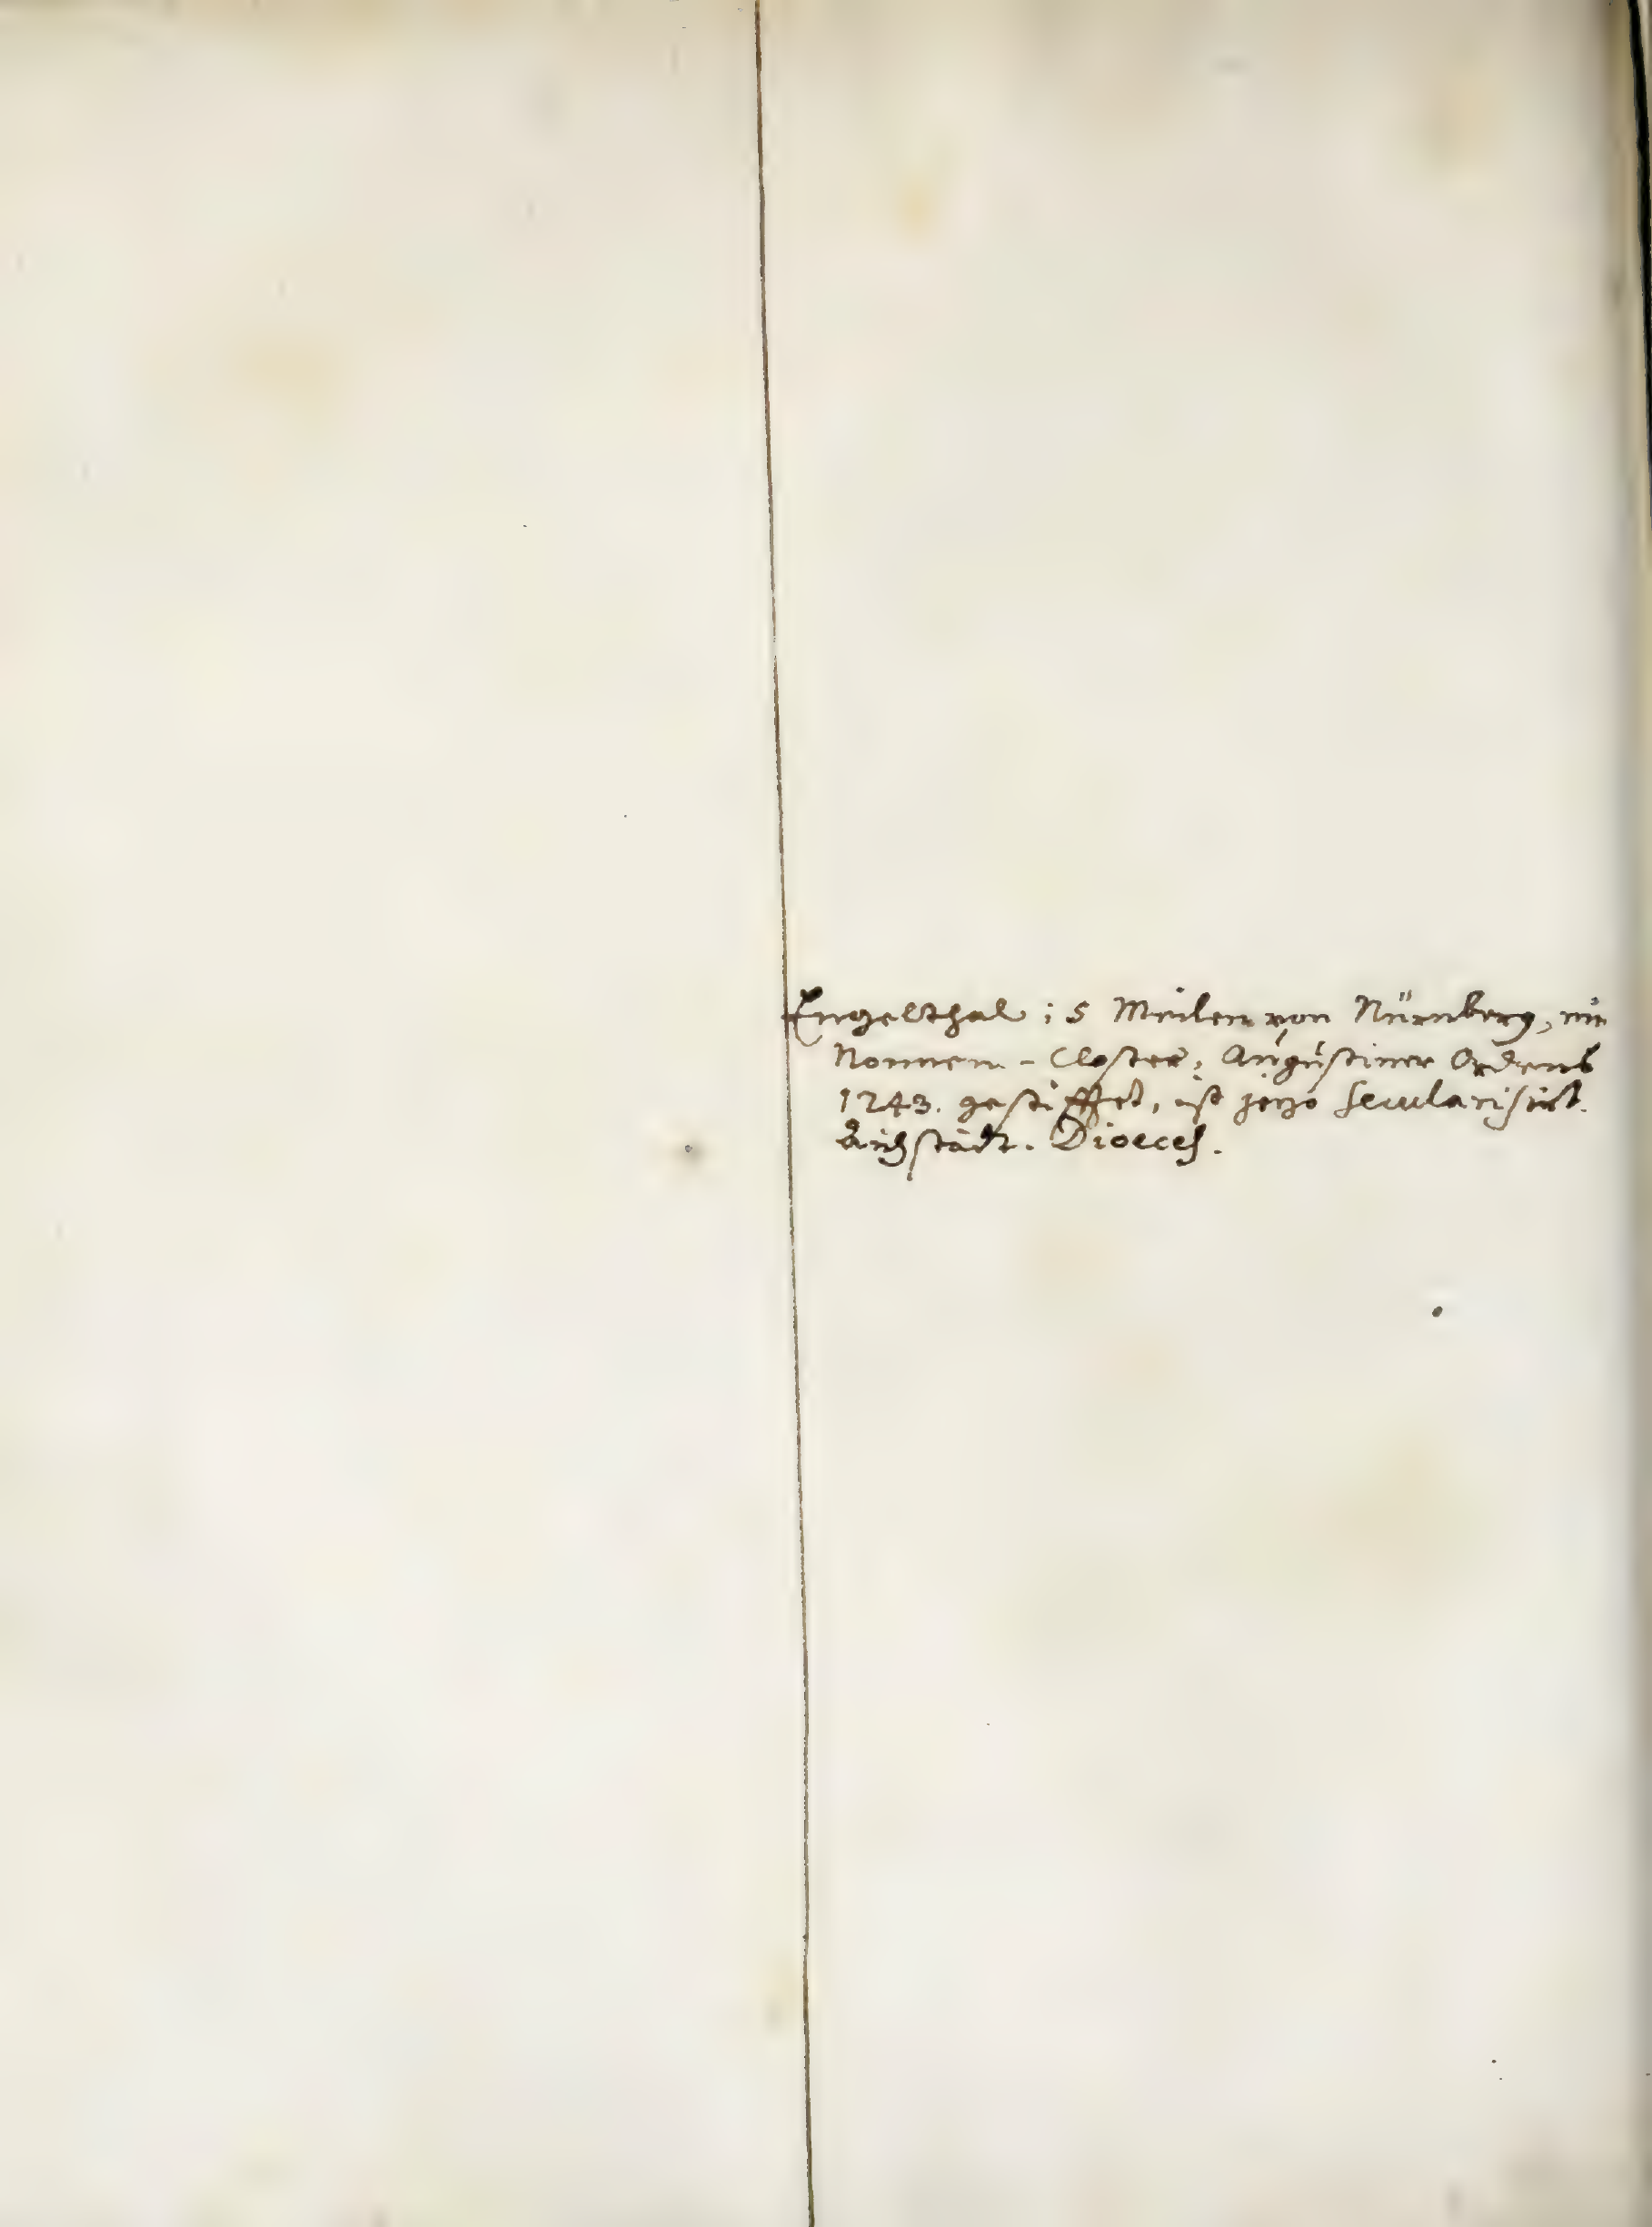 Engelthal; 5 Meilen von Nürnberg, ein
Nonnen-Closter, Augustiner Ordens
1243. gestifftet, ist jezo secularisirt.
Aichstädt. Dioeces.